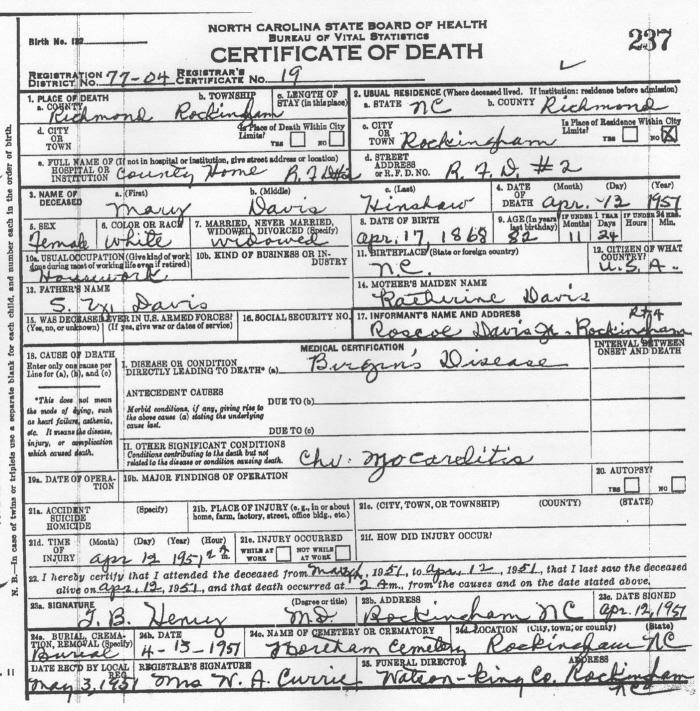 NORTH CAROLINA STATE BOARD OF HEALTH
BUREAU OF VITAL STATISTICS
CERTIFICATE OF DEATH
237
Birth No. 132
REGISTRATION DISTRICT NO. 77-04 REGISTRAR'S CERTIFICATE NO. 19
N. B.—In case of twins or triplets use a separate blank for each child, and number each in the order of birth.
1. PLACE OF DEATH
a. COUNTY Richmond
b. TOWNSHIP Rockingham
c. LENGTH OF STAY (in this place)
2. USUAL RESIDENCE (Where deceased lived. If institution: residence before admission)
a. STATE NC
b. COUNTY Richmond
d. CITY OR TOWN
Is Place of Death Within City Limits? YES NO
c. CITY OR TOWN Rockingham
Is Place of Residence Within City Limits? YES NO X
e. FULL NAME OF (If not in hospital or institution, give street address or location) HOSPITAL OR INSTITUTION County Home R.F.D. #2
d. STREET ADDRESS or R. F. D. NO. R. F. D. #2
3. NAME OF DECEASED
a. (First) Mary
b. (Middle) Davis
c. (Last) Hinshaw
4. DATE OF DEATH (Month) (Day) (Year) Apr. 12 1951
5. SEX Female
6. COLOR OR RACE White
7. MARRIED, NEVER MARRIED, WIDOWED, DIVORCED (Specify) widowed
8. DATE OF BIRTH Apr. 17, 1868
9. AGE (In years last birthday) 82
IF UNDER 1 YEAR Months 11 Days 24
IF UNDER 24 HRS. Min.
10a. USUAL OCCUPATION (Give kind of work done during most of working life even if retired) Housework
10b. KIND OF BUSINESS OR INDUSTRY
11. BIRTHPLACE (State or foreign country) N.C.
12. CITIZEN OF WHAT COUNTRY? U.S.A.
13. FATHER'S NAME S. Davis
14. MOTHER'S MAIDEN NAME Katherine Davis
15. WAS DECEASED EVER IN U.S. ARMED FORCES? (Yes, no, or unknown) (If yes, give war or dates of service)
16. SOCIAL SECURITY NO.
17. INFORMANT'S NAME AND ADDRESS Rt 4
Roscoe Davis Jr. Rockingham
18. CAUSE OF DEATH
Enter only one cause per Line for (a), (b), and (c)
*This does not mean the mode of dying, such as heart failure, asthenia, etc. It means the disease, injury, or complication which caused death.
MEDICAL CERTIFICATION
INTERVAL BETWEEN ONSET AND DEATH
I. DISEASE OR CONDITION DIRECTLY LEADING TO DEATH* (a) Disease
ANTECEDENT CAUSES
Morbid conditions, if any, giving rise to the above cause (a) stating the underlying cause last.
DUE TO (b)
DUE TO (c)
II. OTHER SIGNIFICANT CONDITIONS
Conditions contributing to the death but not related to the disease or condition causing death.
Chr. Mocarditis
19a. DATE OF OPERATION
19b. MAJOR FINDINGS OF OPERATION
20. AUTOPSY? YES NO
21a. ACCIDENT SUICIDE HOMICIDE (Specify)
21b. PLACE OF INJURY (e.g., in or about home, farm, factory, street, office bldg., etc.)
21c. (CITY, TOWN, OR TOWNSHIP) (COUNTY) (STATE)
21d. TIME OF INJURY (Month) (Day) (Year) (Hour) Apr 12 1951 2 A m.
21e. INJURY OCCURRED WHILE AT WORK NOT WHILE AT WORK
21f. HOW DID INJURY OCCUR?
22. I hereby certify that I attended the deceased from March, 1951, to Apr. 12, 1951, that I last saw the deceased
alive on Apr. 12, 1951, and that death occurred at 2 A m., from the causes and on the date stated above.
23a. SIGNATURE (Degree or title) Henry MD.
23b. ADDRESS Rockingham NC
23c. DATE SIGNED Apr. 12, 1951
24a. BURIAL, CREMATION, REMOVAL (Specify) Burial
24b. DATE 4-13-1951
24c. NAME OF CEMETERY OR CREMATORY Cemetery
24d. LOCATION (City, town, or county) (State) Rockingham NC
DATE REC'D BY LOCAL REG. May 3, 1951
REGISTRAR'S SIGNATURE Mrs W. A. Currie
25. FUNERAL DIRECTOR ADDRESS Watson-King Co. Rockingham NC
11